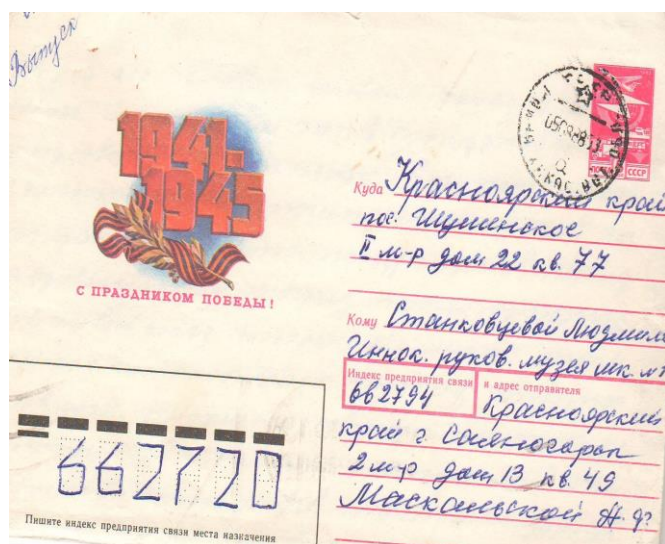 Выпуск
1941-
1945
С ПРАЗДНИКОМ ПОБЕДЫ!
СССР
Куда Красноярский край
пос. Шушенское
II м-р дом 22 кв. 77
Кому Станковцевой Людмиле
Иннок. руков. музея
Индекс предприятия связи и адрес отправителя
662794 Красноярский
край г. Саяногорск
2 м-р дом 13 кв. 49
Маскальской
662720
Пишите индекс предприятия связи места назначения